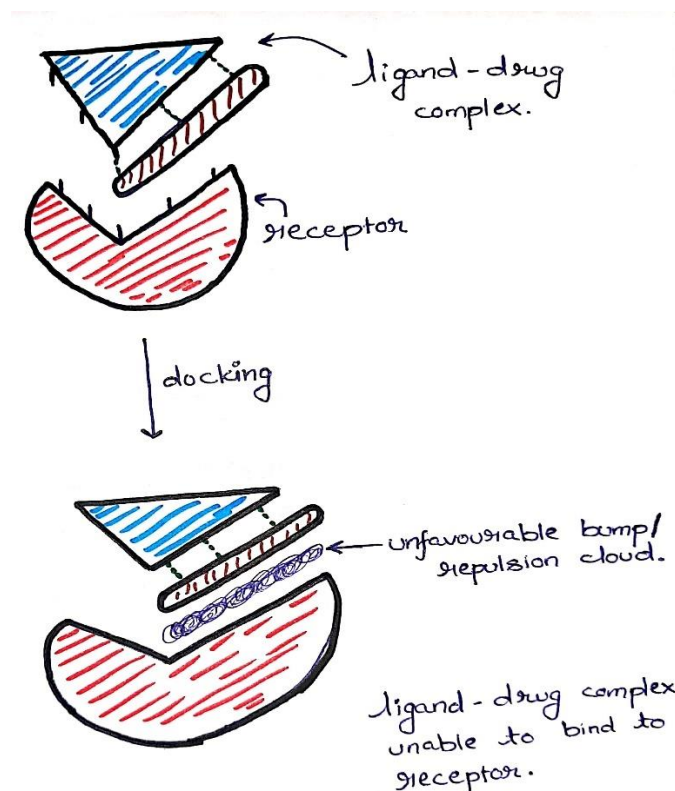 ligand-drug
complex.
receptor
docking
unfavourable bump/
repulsion cloud.
ligand-drug complex
unable to bind to
receptor.